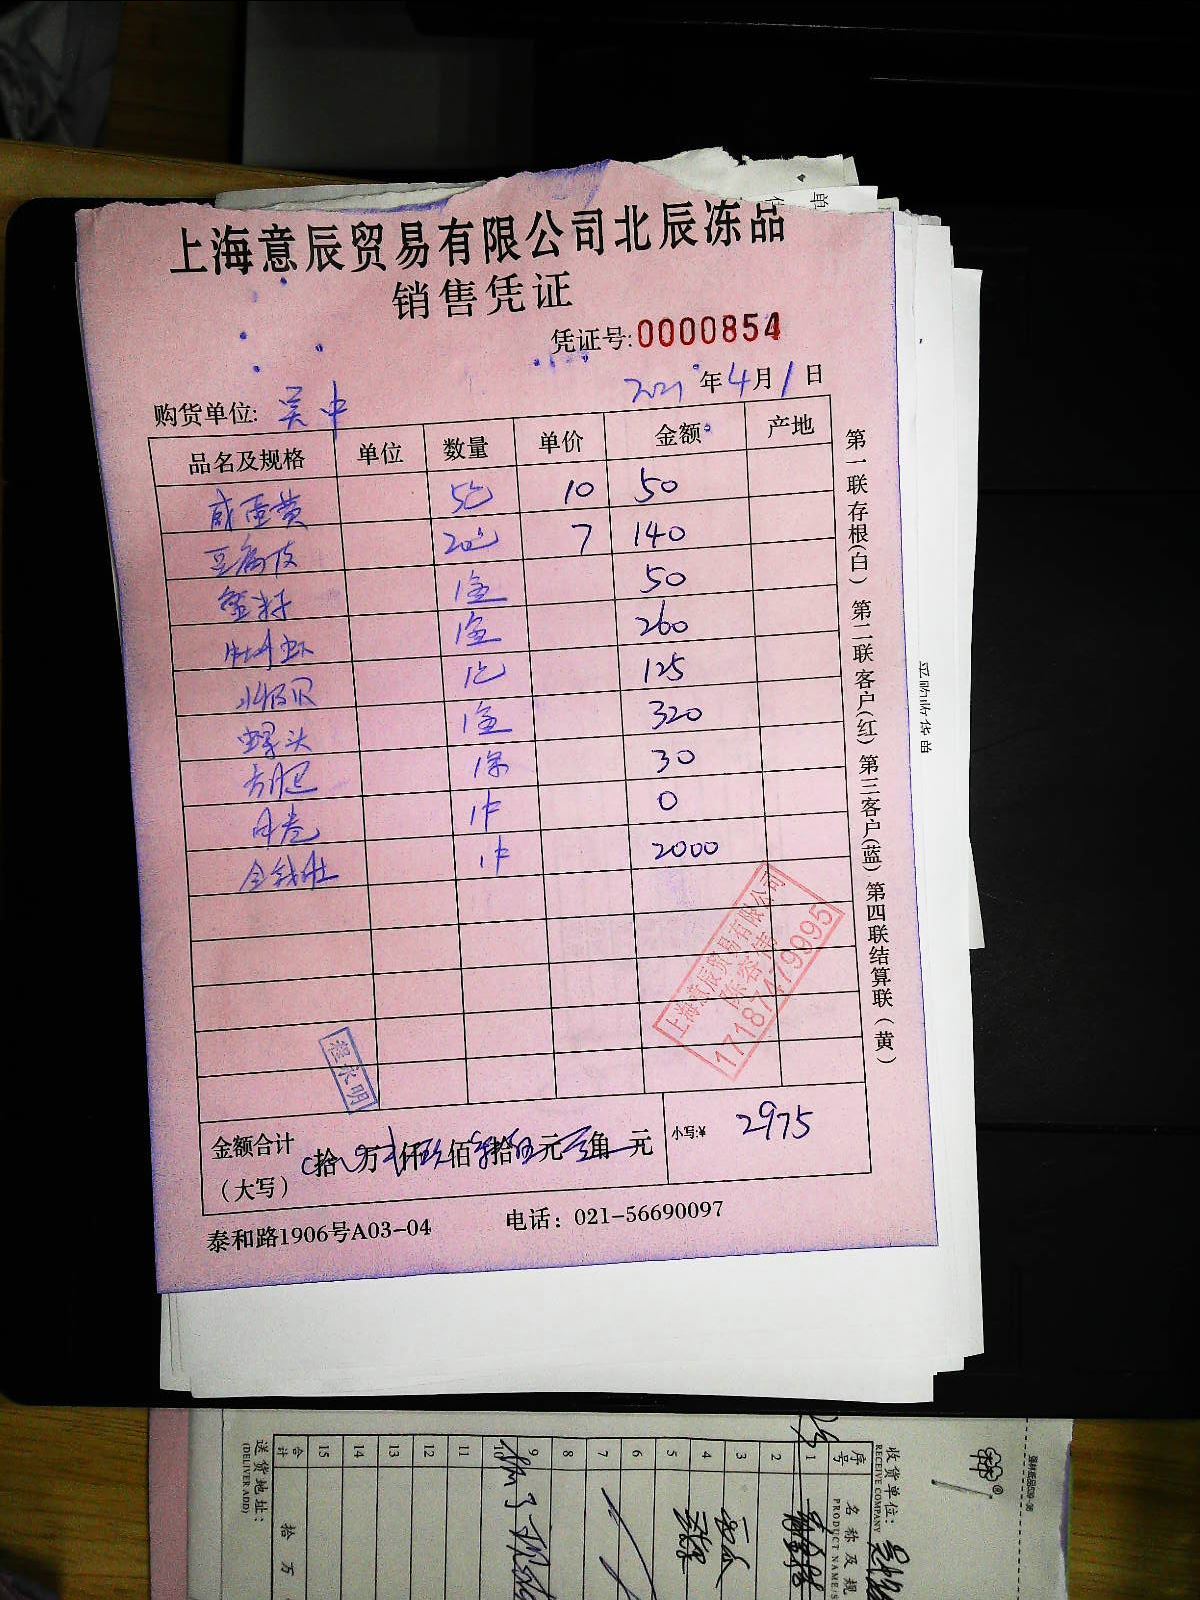 上海意辰贸易有限公司北辰冻品
销售凭证
凭证号:0000854
购货单位: 吴中 2021年4月1日
品名及规格 单位 数量 单价 金额 产地
咸蛋黄 5包 10 50
豆腐皮 20包 7 140
蟹籽 1盒 50
牡丹虾 1盒 260
1包 125
螺头 1盒 320
方腿 1条 30
1件 0
金钱肚 1件 2000
上海意辰贸易有限公司
17187479995
程永明
金额合计
(大写) 拾 万 仟 佰 拾 元 角 元 小写:¥ 2975
泰和路1906号A03-04 电话：021-56690097
第一联存根(白) 第二联客户(红) 第三客户(蓝) 第四联结算联(黄)
收货单位:
RECEIVE COMPANY
序号 名称及规
PRODUCT NAME/S
1
2
3
4
5
6
7
8
9
10
11
12
13
14
15
合计 拾 万
送货地址:
(DELIVER.ADD)